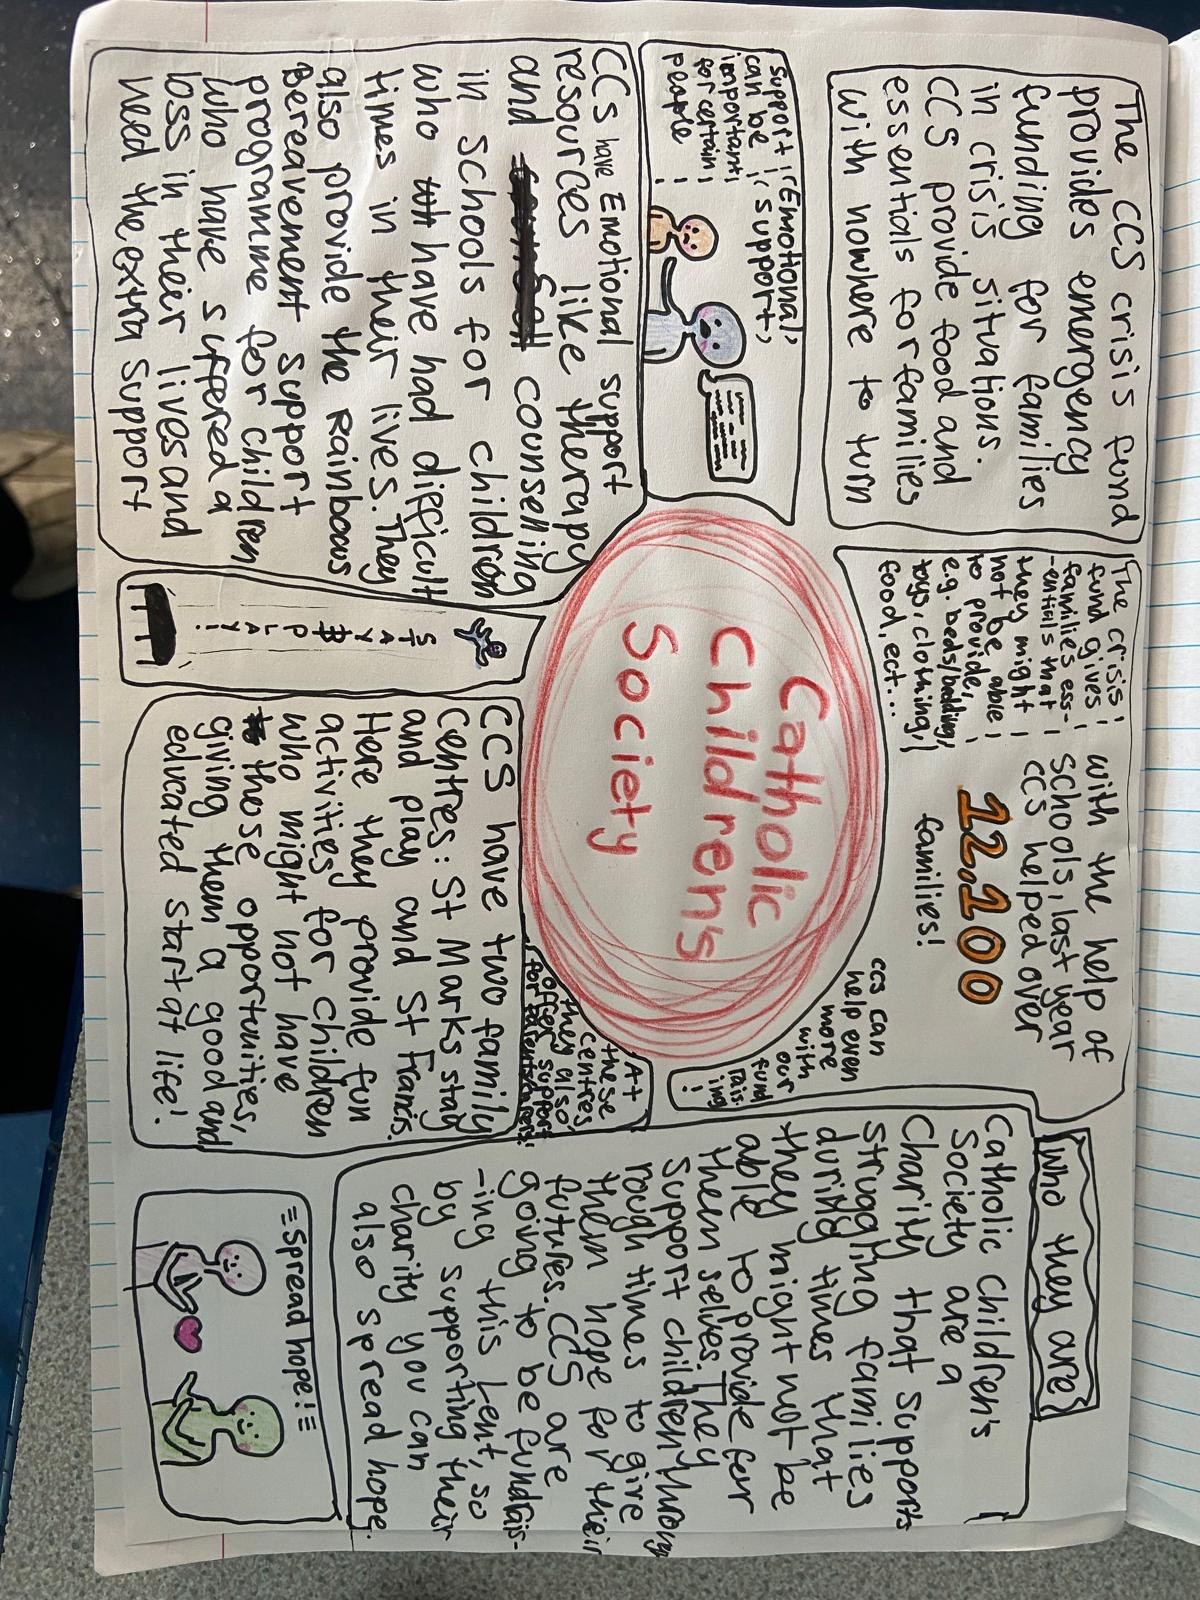 The CCS crisis fund
provides emergency
funding for families
in crisis situations.
CCS provide food and
essentials for families
with nowhere to turn
The crisis
fund gives
families ess-
-entials that
they might
not be able
to provide,
e.g. beds/bedding,
toys, clothing,
food, ect...
with the help of
schools, last year
CCS helped over
12.100
families!
CCS can
help even
more
with
our
fund
rais-
ing
!
Who they are
Catholic Children's
Society are a
Charity that supports
struggling families
during times that
they might not be
able to provide for
them selves. They
support children throug
rough times to give
them hope for their
futures. CCS are
going to be fundrais-
-ing this Lent, so
by supporting their
charity you can
also spread hope.
Emotional
support
Support
can be
important
for certain
people
Catholic
Children's
Society
CCS have Emotional support
resources like therapy
and counselling
in schools for children
who have had difficult
times in their lives. They
also provide the Rainbows
Bereavement support
programme for children
who have suffered a
loss in their lives and
need the extra support
STAY
PLAY!
CCS have two family
Centres: St Marks stay
and play and St Francis.
Here they provide fun
activities for children
who might not have
those opportunities,
giving them a good and
educated start at life!
At
these
centres
they also
offer support
for parents/carers!
Spread hope!